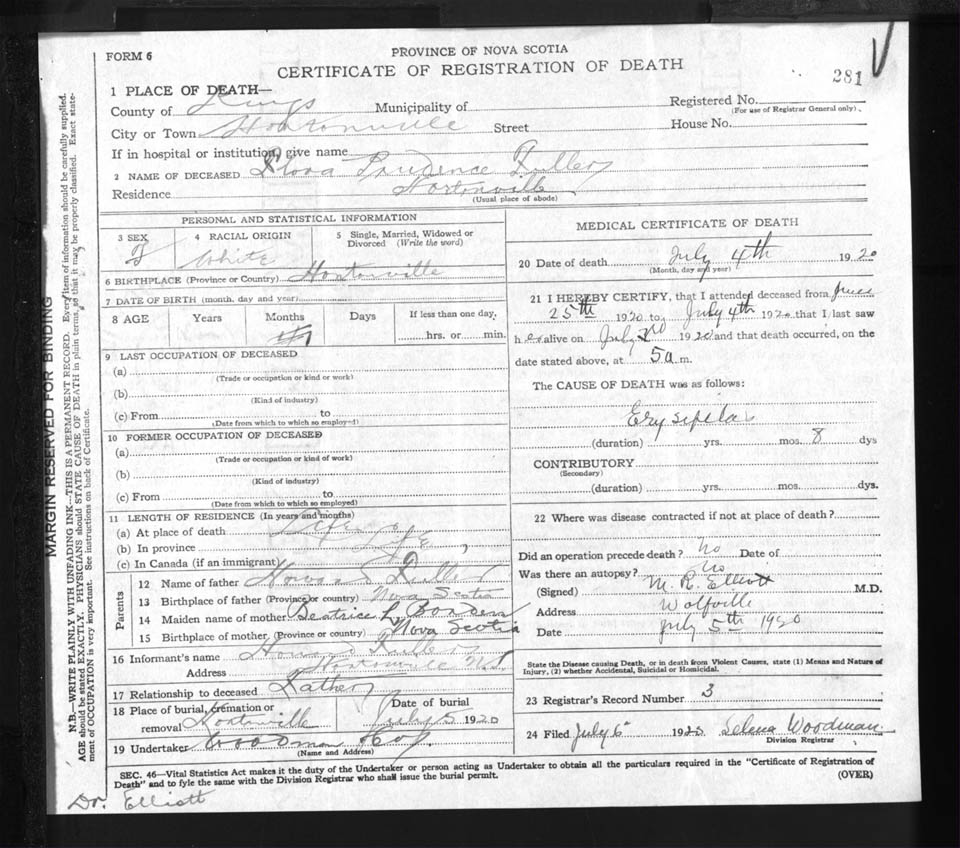 FORM 6
PROVINCE OF NOVA SCOTIA
CERTIFICATE OF REGISTRATION OF DEATH
281
1 PLACE OF DEATH—
County of Kings Municipality of Registered No.
(For use of Registrar General only).
City or Town Hortonville Street House No.
If in hospital or institution, give name
2 NAME OF DECEASED Flora Prudence Fuller
Residence Hortonville
(Usual place of abode)
PERSONAL AND STATISTICAL INFORMATION
3 SEX 4 RACIAL ORIGIN 5 Single, Married, Widowed or Divorced (Write the word)
F White
6 BIRTHPLACE (Province or Country) Hortonville
7 DATE OF BIRTH (month, day and year)
8 AGE Years Months Days If less than one day,
hrs. or min.
9 LAST OCCUPATION OF DECEASED
(a)
(Trade or occupation or kind or work)
(b)
(Kind of industry)
(c) From to
(Date from which to which so employed)
10 FORMER OCCUPATION OF DECEASED
(a)
(Trade or occupation or kind of work)
(b)
(Kind of industry)
(c) From to
(Date from which to which so employed)
11 LENGTH OF RESIDENCE (In years and months)
(a) At place of death Life
(b) In province Life
(c) In Canada (if an immigrant)
Parents
12 Name of father Howard Fuller
13 Birthplace of father (Province or country) Nova Scotia
14 Maiden name of mother Beatrice L Borden
15 Birthplace of mother (Province or country) Nova Scotia
16 Informant's name Howard Fuller
Address Hortonville N.S.
17 Relationship to deceased Father
18 Place of burial, cremation or removal Hortonville Date of burial July 5 1920
19 Undertaker Woodman & Co.
(Name and Address)
MEDICAL CERTIFICATE OF DEATH
20 Date of death July 4th 1920
(Month, day and year)
21 I HEREBY CERTIFY, that I attended deceased from June
25th 1920 to July 4th 1920 that I last saw
her alive on July 2nd 1920 and that death occurred, on the
date stated above, at 5 a m.
The CAUSE OF DEATH was as follows:
Erysipelas
(duration) yrs. mos. 8 dys
CONTRIBUTORY
(Secondary)
(duration) yrs. mos. dys.
22 Where was disease contracted if not at place of death?
Did an operation precede death? No Date of
Was there an autopsy? No
(Signed) M. R. Elliott M.D.
Address Wolfville
Date July 5th 1920
State the Disease causing Death, or in death from Violent Causes, state (1) Means and Nature of
Injury, (2) whether Accidental, Suicidal or Homicidal.
23 Registrar's Record Number 3
24 Filed July 6 1920 Selena Woodman
Division Registrar
SEC. 46—Vital Statistics Act makes it the duty of the Undertaker or person acting as Undertaker to obtain all the particulars required in the "Certificate of Registration of
Death" and to fyle the same with the Division Registrar who shall issue the burial permit.
(OVER)
Dr. Elliott
MARGIN RESERVED FOR BINDING
N.B.—WRITE PLAINLY WITH UNFADING INK—THIS IS A PERMANENT RECORD. Every item of information should be carefully supplied.
AGE should be stated EXACTLY. PHYSICIANS should STATE CAUSE OF DEATH in plain terms, so that it may be properly classified. Exact state-
ment of OCCUPATION is very important. See instructions on back of Certificate.